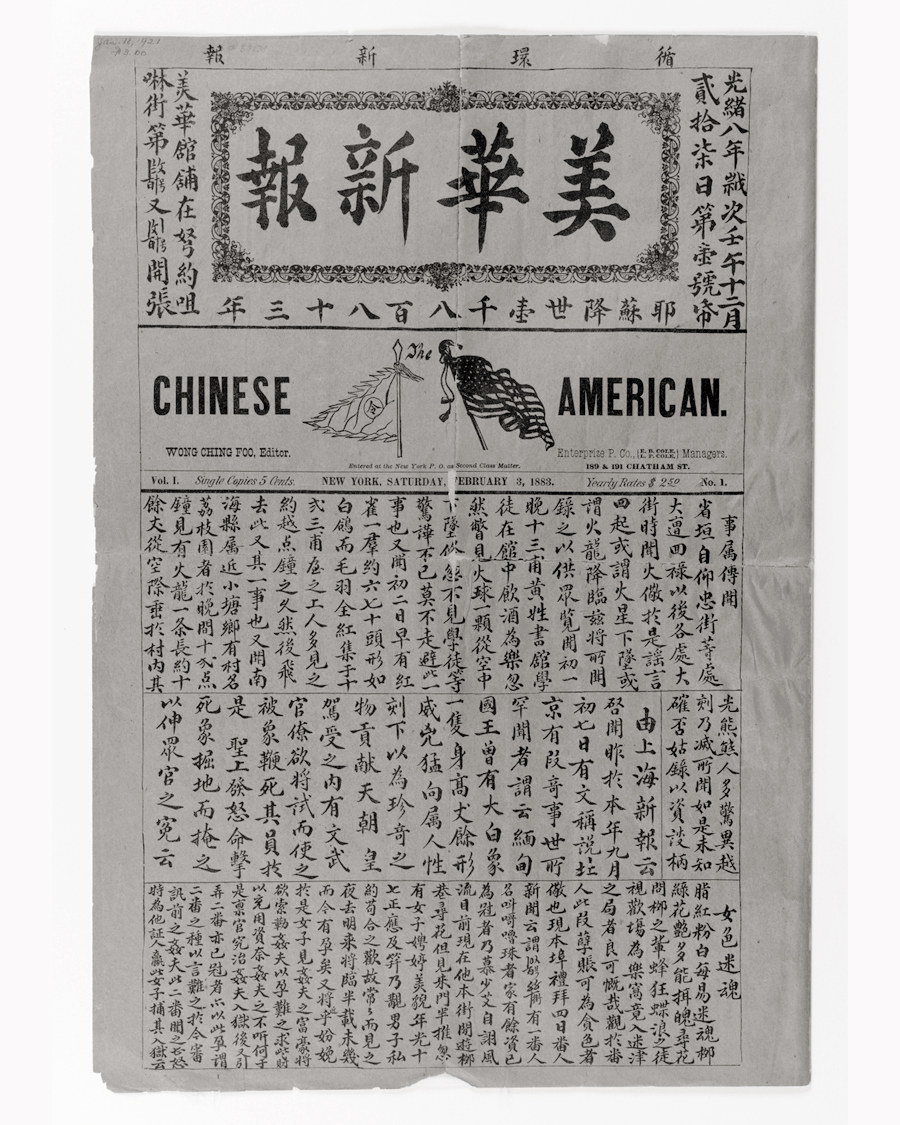 循環新報
光緒八年歲次壬午十二月
貳拾柒日第壹號帋
美華新報
美華館舖在孥約咀
啉街第又開張
耶蘇降世壹千八百八十三年
The
CHINESE AMERICAN.
WONG CHING FOO, Editor.
Enterprise P. Co., Managers.
Entered at the New York P. O. as Second Class Matter.
189 & 191 CHATHAM ST.
Vol. 1. Single Copies 5 Cents. NEW YORK, SATURDAY, FEBRUARY 3, 1883. Yearly Rates $ 2 50 No. 1.
事属傳聞
省垣自仰忠街等處
大遭囬禄以後各處大
街時聞火儆於是謡言
四起或謂火星下墜或
謂火龍降臨兹將所聞
錄之以供眾覽聞初一
晚十三甫黄姓書館學
徒在館中飲酒為樂忽
然瞥見火球一顆從空中
下墜倐忽不見學徒等
驚譁不已莫不走避此一
事也又聞初二日早有紅
雀一羣約六七十頭形如
白鴿而毛羽全紅集于十
弍三甫處之工人多見之
約越点鐘之久然後飛
去此又其一事也又聞南
海縣属近小塘鄉有村名
荔枝園者於晚間十弍点
鐘見有火龍一条長約十
餘丈從空際垂於村内其
光熊熊人多驚異越
刻乃滅所聞如是未知
確否姑錄以資談柄
由上海新報云
啓聞昨於本年九月
初七日有文稱説北
京有段奇事世所
罕聞者謂云緬甸
國王曾有大白象
一隻身高丈餘形
威兇猛向属人性
刻下以為珍奇之
物貢献天朝 皇
駕受之内有文武
官僚欲將試而使之
被象鞭死其員於
是 聖上發怒命擊
死象掘地而掩之
以伸眾官之寃云
女色迷魂
脂紅粉白每易迷魂柳
綠花艷多能揖魄尋花
問柳之輩蜂狂蝶浪之徒
視歡塲為樂窩竟入迷津
之局者良可慨哉觀於番
人此段孽賬可為貪色者
儆也現本埠禮拜四日番人
新聞云謂有一番人
名呌嚕珠者家有餘資已
為冠者乃慕少艾自詡風
流日前現在他本街閒遊柳
巷尋花但見朱門半推忽
有女子娉婷美貌年光十
七正應及笄乃覯男子私
約苟合之歡故常〻而見之
夜去明來將臨半載未幾
而令有孕矣又將平妢娩
於是女子見姦夫之富豪將
欲索勒姦夫以孕難之求此時
以充用資奈姦夫之不听何于
是禀官究治姦夫入獄後又引
弄二番亦已冠者亦以此孕謂
二番之種以言難之於今審
訊前之姦夫此二番聞之忿怒
時為他証人贏此女子捕其入獄云